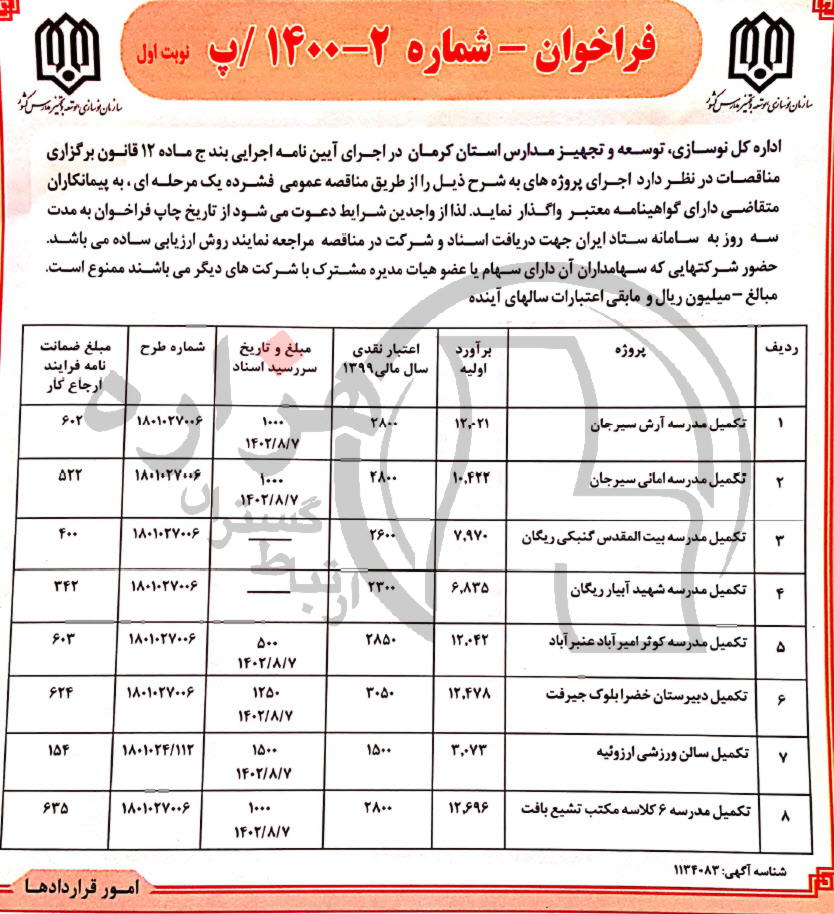 فراخوان – شماره ۲–۱۴۰۰ /پ نوبت اول
سازمان نوسازی، توسعه و تجهیز مدارس کشور
سازمان نوسازی، توسعه و تجهیز مدارس کشور
اداره کل نوسازی، توسعه و تجهیز مدارس استان کرمان در اجرای آیین نامه اجرایی بند ج ماده ۱۲ قانون برگزاری
مناقصات در نظر دارد اجرای پروژه های به شرح ذیل را از طریق مناقصه عمومی فشرده یک مرحله ای ، به پیمانکاران
متقاضی دارای گواهینامه معتبر واگذار نماید. لذا از واجدین شرایط دعوت می شود از تاریخ چاپ فراخوان به مدت
سه روز به سامانه ستاد ایران جهت دریافت اسناد و شرکت در مناقصه مراجعه نمایند روش ارزیابی ساده می باشد.
حضور شرکتهایی که سهامداران آن دارای سهام یا عضو هیات مدیره مشترک با شرکت های دیگر می باشند ممنوع است.
مبالغ – میلیون ریال و مابقی اعتبارات سالهای آینده
ردیف پروژه برآورد اولیه اعتبار نقدی سال مالی۱۳۹۹ مبلغ و تاریخ سررسید اسناد شماره طرح مبلغ ضمانت نامه فرایند ارجاع کار
۱ تکمیل مدرسه آرش سیرجان ۱۲,۰۲۱ ۲۸۰۰ ۱۰۰۰ ۱۴۰۲/۸/۷ ۱۸۰۱۰۲۷۰۰۶ ۶۰۲
۲ تکمیل مدرسه امانی سیرجان ۱۰,۴۲۲ ۲۸۰۰ ۱۰۰۰ ۱۴۰۲/۸/۷ ۱۸۰۱۰۲۷۰۰۶ ۵۲۲
۳ تکمیل مدرسه بیت المقدس گنبکی ریگان ۷,۹۷۰ ۲۶۰۰ —— ۱۸۰۱۰۲۷۰۰۶ ۴۰۰
۴ تکمیل مدرسه شهید آبیار ریگان ۶,۸۳۵ ۲۳۰۰ —— ۱۸۰۱۰۲۷۰۰۶ ۳۴۲
۵ تکمیل مدرسه کوثر امیرآباد عنبرآباد ۱۲,۰۴۲ ۲۸۵۰ ۵۰۰ ۱۴۰۲/۸/۷ ۱۸۰۱۰۲۷۰۰۶ ۶۰۳
۶ تکمیل دبیرستان خضرا بلوک جیرفت ۱۲,۴۷۸ ۳۰۵۰ ۱۲۵۰ ۱۴۰۲/۸/۷ ۱۸۰۱۰۲۷۰۰۶ ۶۲۴
۷ تکمیل سالن ورزشی ارزوئیه ۳,۰۷۳ ۱۵۰۰ ۱۵۰۰ ۱۴۰۲/۸/۷ ۱۸۰۱۰۲۴/۱۱۲ ۱۵۴
۸ تکمیل مدرسه ۶ کلاسه مکتب تشیع بافت ۱۲,۶۹۶ ۲۸۰۰ ۱۰۰۰ ۱۴۰۲/۸/۷ ۱۸۰۱۰۲۷۰۰۶ ۶۳۵
هزاره
گستران
ارتباط
شناسه آگهی: ۱۱۳۴۰۸۳
امور قراردادها